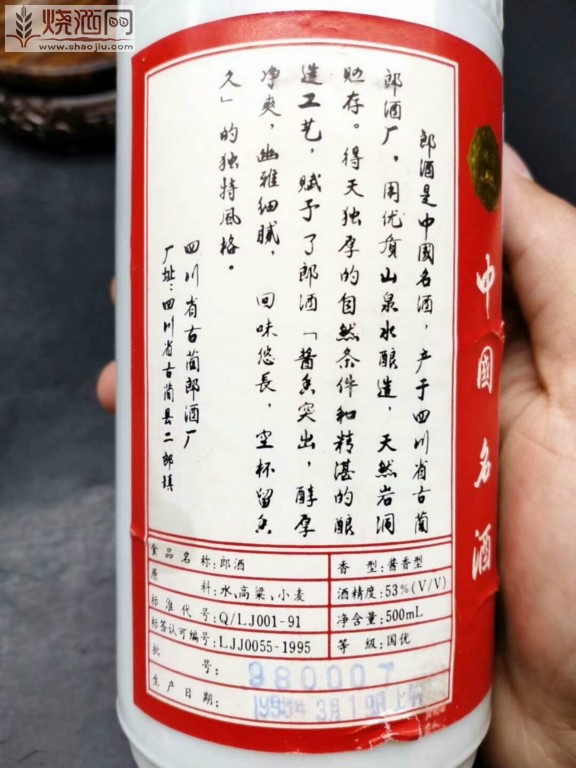 烧酒网
www.shaojiu.com
郎酒是中國名酒，产于四川省古蔺
郎酒厂，用优质山泉水酿造，天然岩洞
贮存。得天独厚的自然条件和精湛的酿
造工艺，赋予了郎酒「酱香突出，醇厚
净爽，幽雅细腻，回味悠長，空杯留香
久」的独特風格。
四川省古蔺郎酒厂
厂址：四川省古蔺县二郎镇
中國名酒
食品名称：郎酒
香型：酱香型
原料：水、高粱、小麦
酒精度：53%(V/V)
标准代号：Q/LJ001-91
净含量：500mL
标签认可编号：LJJ0055-1995
等级：国优
批号：980007
生产日期：1998年3月19日